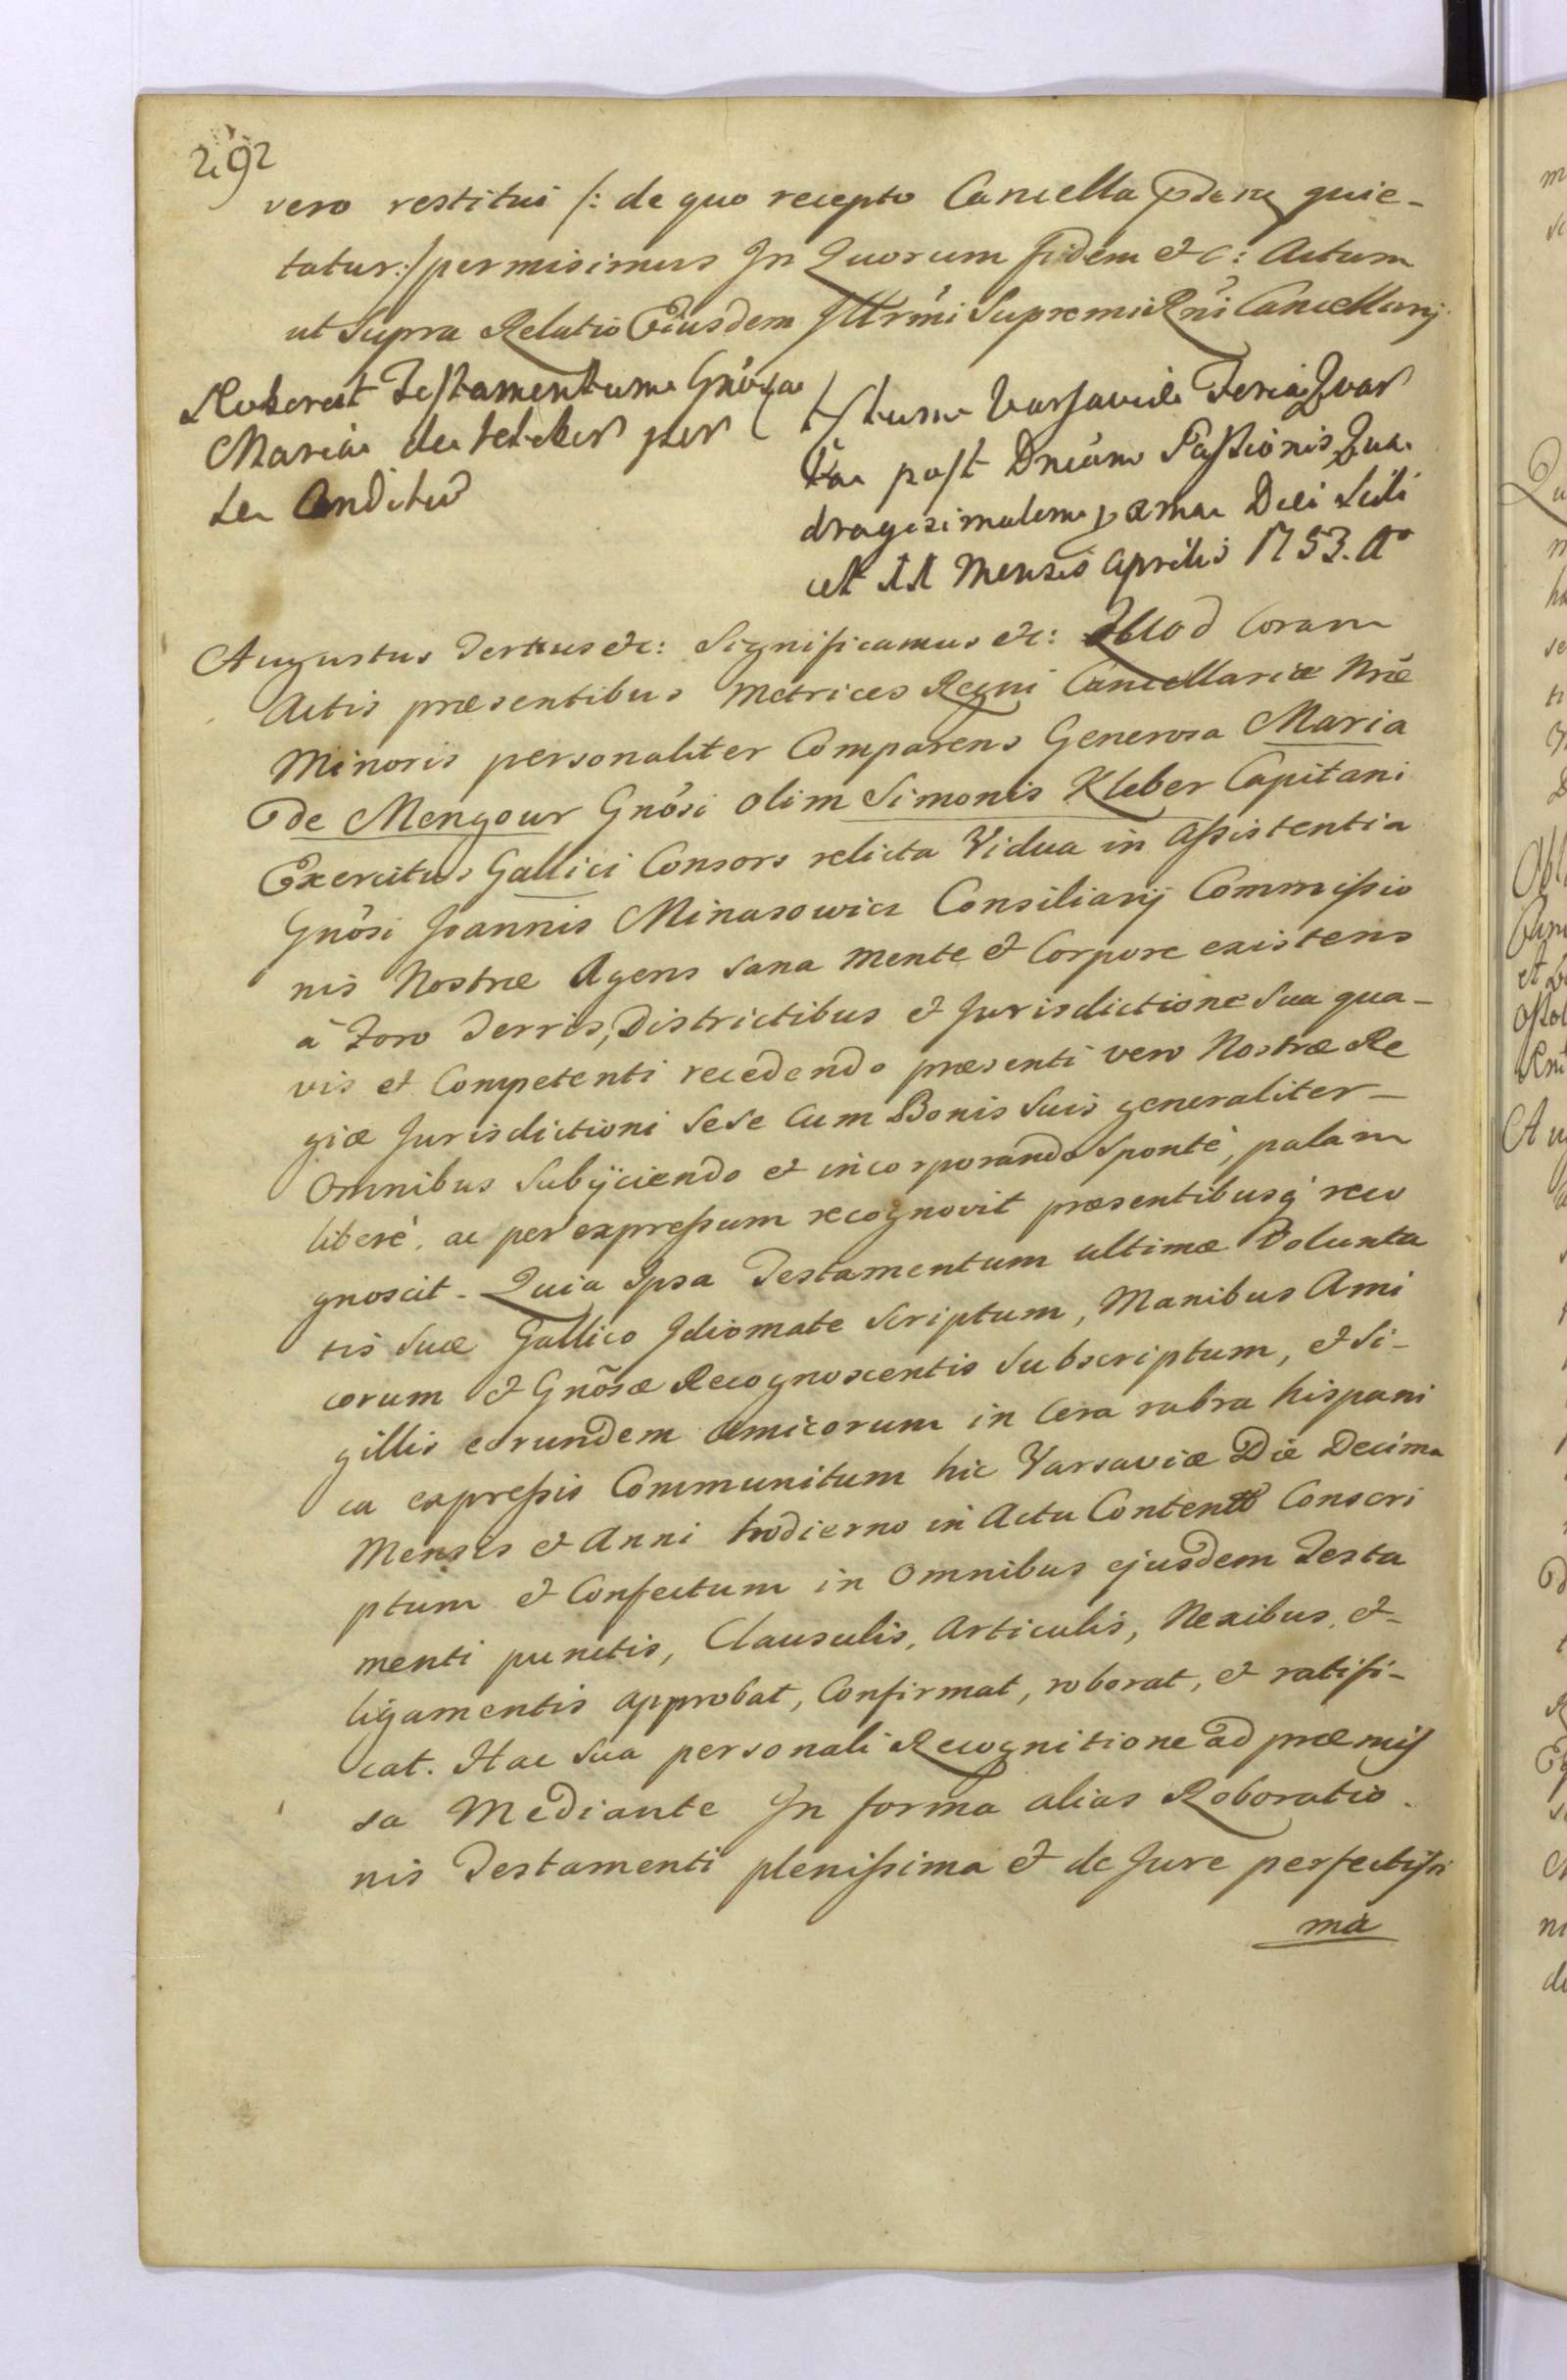 292
vero restitui /: de quo recepto Cancella quie-
tatur :/ permisimus In Quorum fidem etc: Actum
ut Supra Relatio Eiusdem Illrmi Supremi Rni Cancellarij
Roborat Testamentum Gnosa
Maria de Kleber per
se Conditum
Actum Varsaviae Feria Quar
ta post Dnicam Passionis Qua
dragesimalem pma Diei Scili
cet 11 Mensis Aprilis 1753. Ao
Augustus Tertius etc: Significamus etc: Quod Coram
Actis præsentibus Metrices Regni Cancellariæ Nræ
Minoris personaliter Comparens Generosa Maria
de Mengour Gnosi olim Simonis Kleber Capitani
Exercitus Gallici Consors relicta Vidua in Assistentia
Gnosi Joannis Minasowicz Consiliarij Commissio
nis Nostræ Agens sana mente et Corpore existens
à Foro Terris, Districtibus et Jurisdictione Sua qua-
vis et Competenti recedendo præsenti vero Nostræ Re
giæ Jurisdictioni Sese Cum Bonis Suis generaliter
Omnibus Subijciendo et incorporando Sponte, palam
libere, ac per expressum recognovit præsentibusq reco
gnoscit. Quia Ipsa Testamentum ultimæ Volunta
tis Suæ Gallico Idiomate Scriptum, Manibus Ami
corum et Gnosæ Recognoscentis Subscriptum, et Si-
gillis eorundem Amicorum in Cera rubra hispani
ca expressis Communitum hic Varsaviæ Die Decima
Mensis et Anni hodierno in Actu Contento Conscri
ptum et Confectum in Omnibus ejusdem Testa
menti punctis, Clausulis, Articulis, Nexibus, et
ligamentis approbat, Confirmat, roborat, et ratifi-
cat. Hac Sua personali Recognitione ad præmis
sa Mediante In forma alias Roboratio
nis Testamenti plenissima et de Jure perfectissi
ma